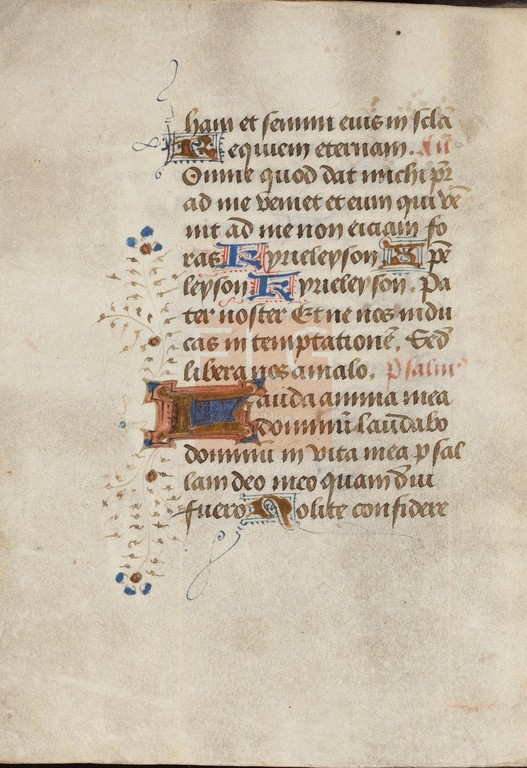 ham et semini eius in sclā
Requiem eternam. Añ
Omne quod dat michi pr̄
ad me veniet et eum qui ve
nit ad me non eiciam fo
ras Kyrieleyson Xp̄e
leyson Kyrieleyson. Pa
ter noster Et ne nos indu
cas in temptationē. Sed
libera nos amalo. Psalmꝰ
Lauda anima mea
dominū laudabo
dominū in vita mea psal
lam deo meo quam diu
fuero Nolite confidere